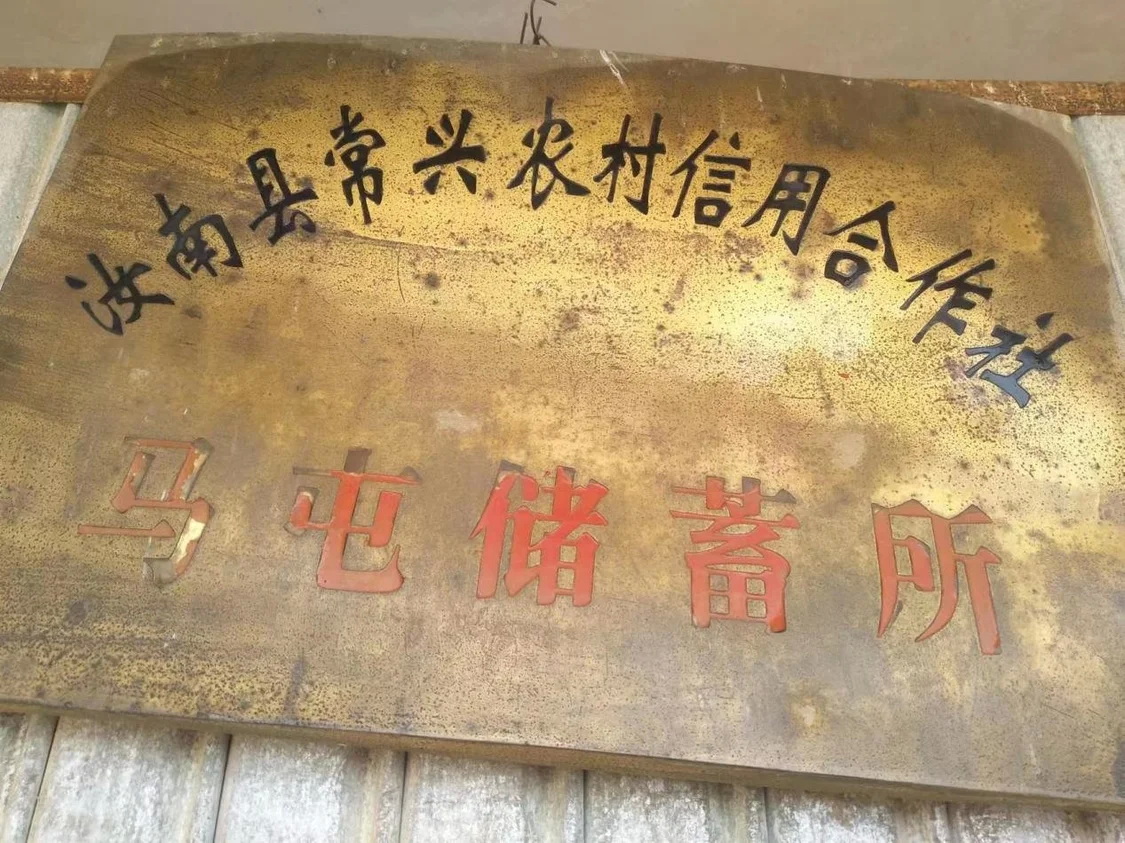 汝南县常兴农村信用合作社
马屯储蓄所